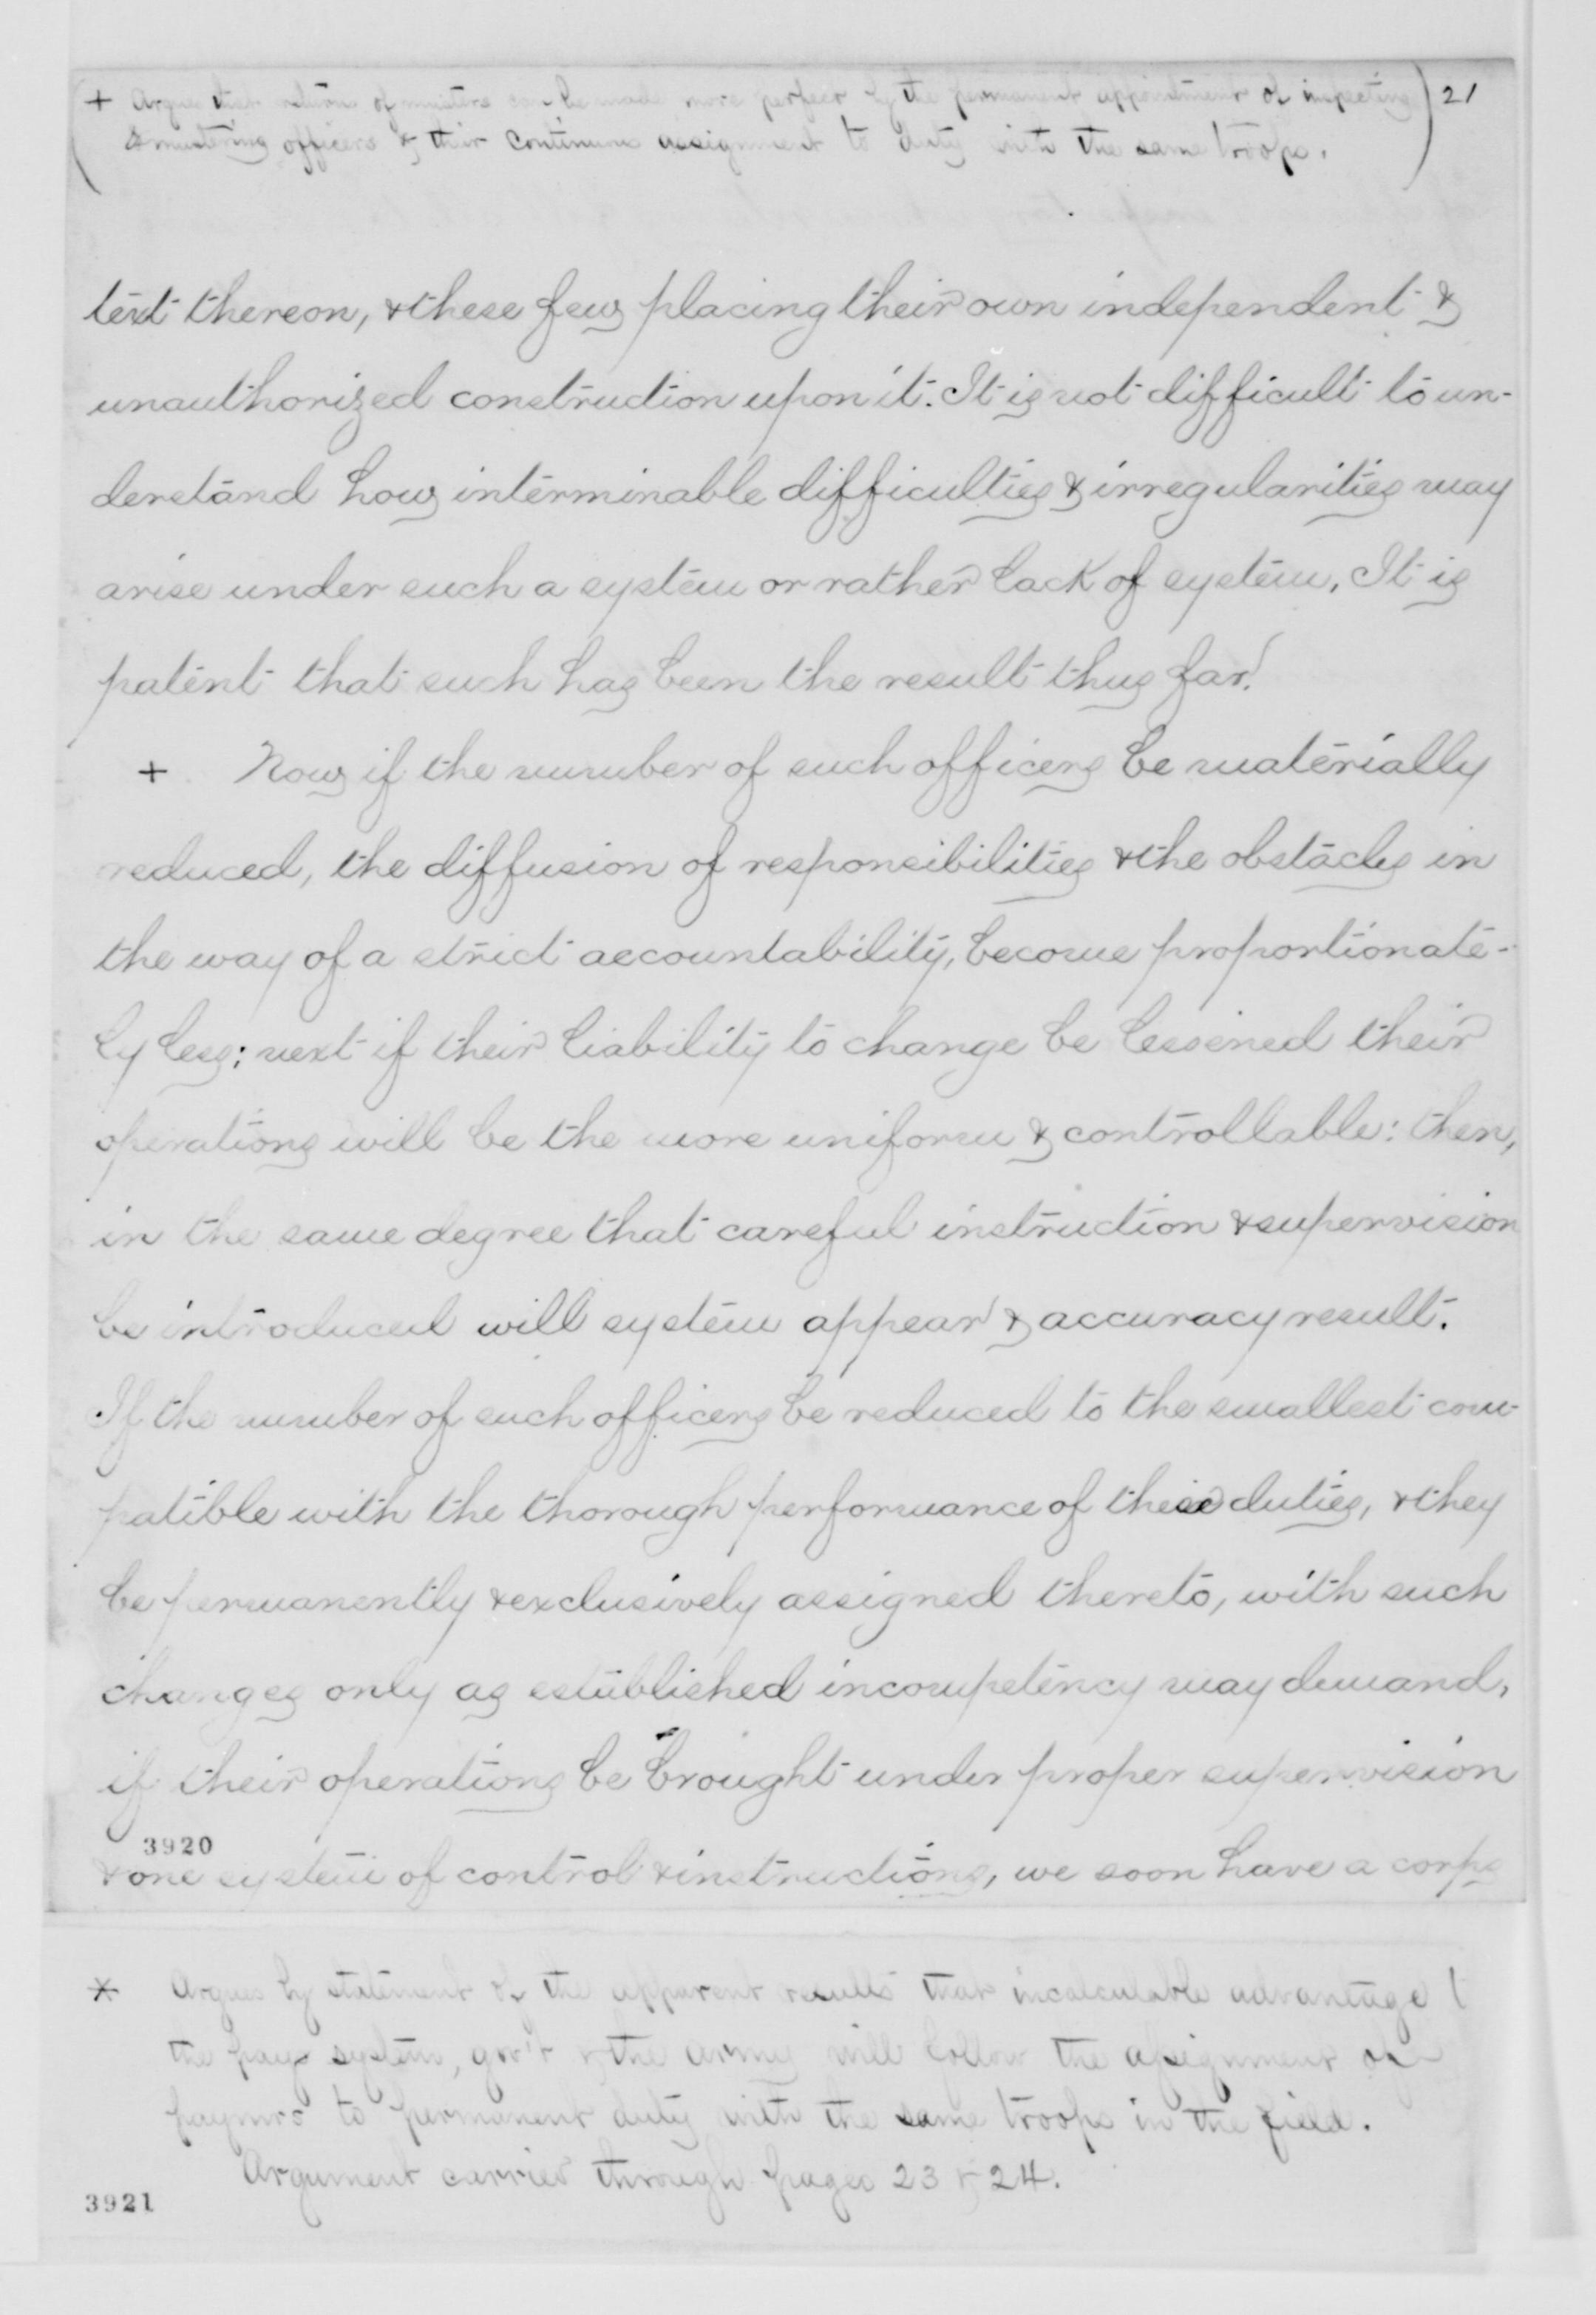 + Argues that returns of musters can be made more perfect by the permanent appointment of inspecting
& mustering officers & their continuous assignment to duty with the same troops.
21
text thereon, & these few placing their own independent &
unauthorized construction upon it. It is not difficult to un-
derstand how interminable difficulties & irregularities may
arise under such a system or rather lack of system. It is
patent that such has been the result thus far.
+ Now if the number of such officers be materially
reduced, the diffusion of responsibilities & the obstacles in
the way of a strict accountability, become proportionate-
ly less; next if their liability to change be lessened their
operations will be the more uniform & controllable: then,
in the same degree that careful instruction & supervision
be introduced will system appear & accuracy result.
If the number of such officers be reduced to the smallest com-
patible with the thorough performance of their duties, & they
be permanently & exclusively assigned thereto, with such
changes only as established incompetency may demand,
if their operations be brought under proper supervision
3920
& one system of control & instructions, we soon have a corps
* Argues by statement of the apparent results that incalculable advantage t
the pay system, gov't & the army will follow the assignment of
paymrs to permanent duty with the same troops in the field.
Argument carried through pages 23 & 24.
3921